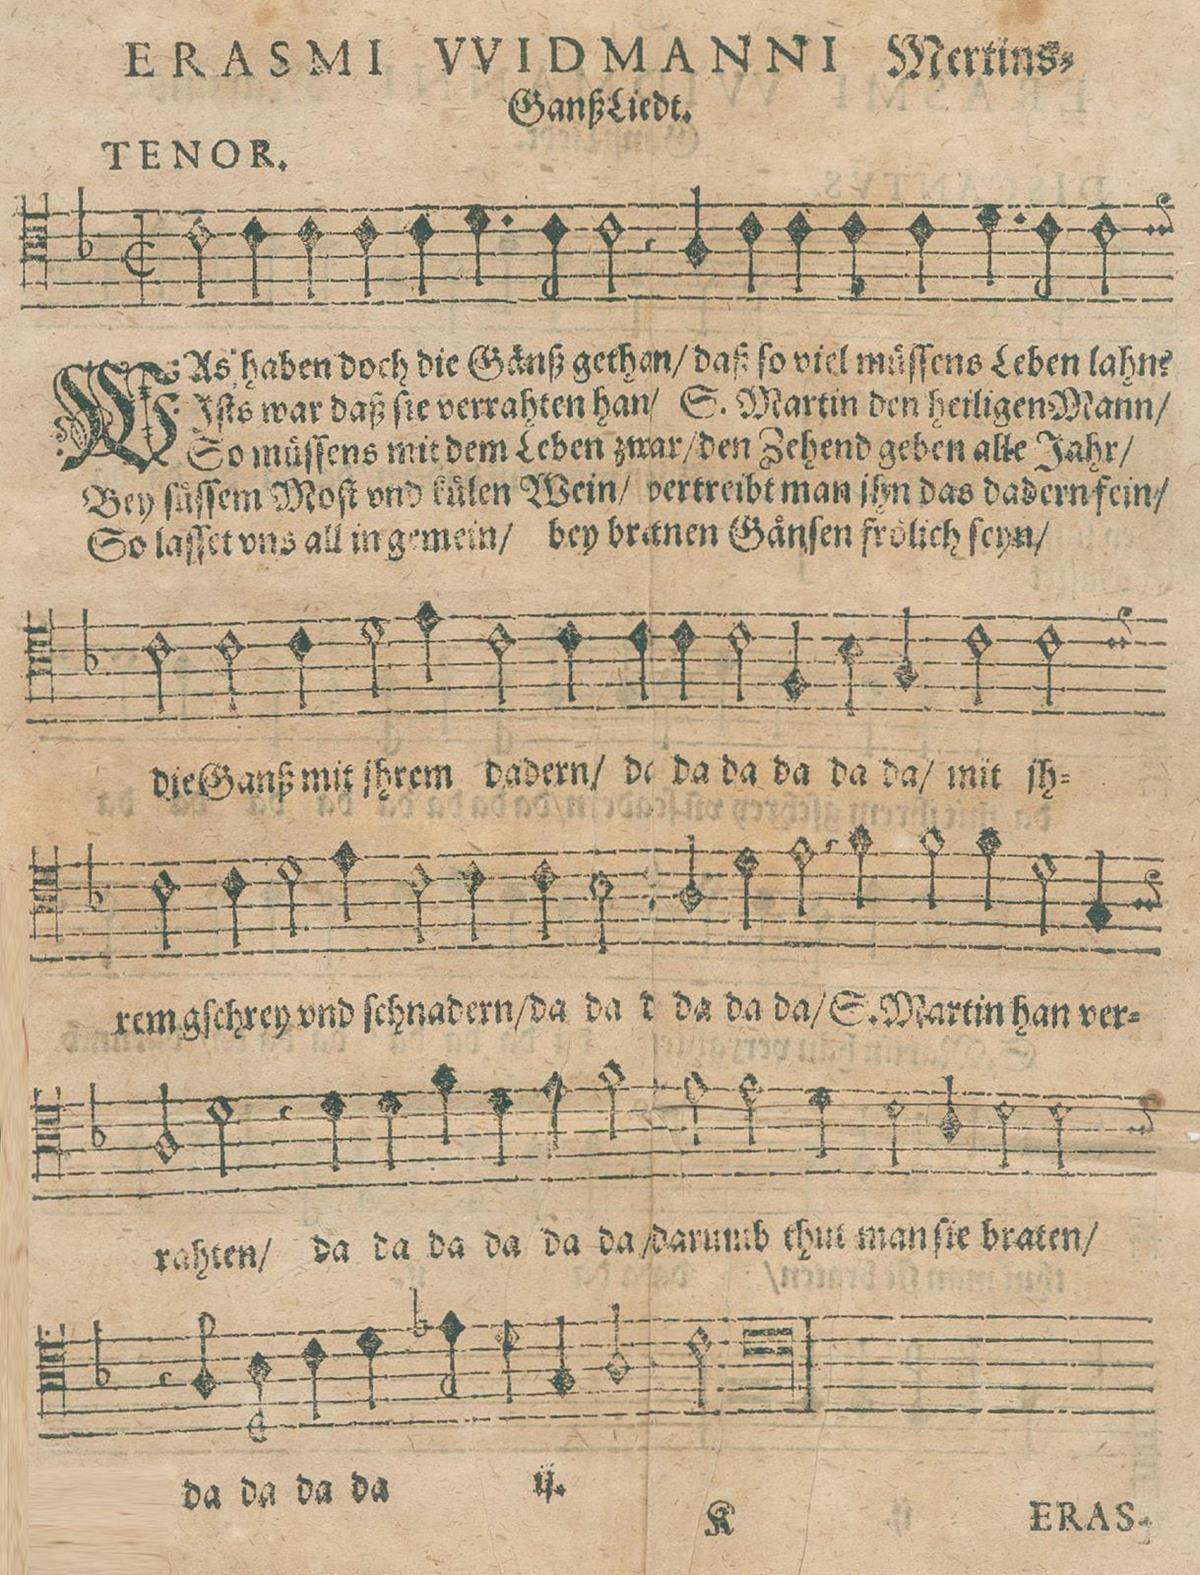 ERASMI VVIDMANNI Mertins⸗
GanßLiedt.
TENOR.
WAs haben doch die Gaͤnß gethan/ daß so viel muͤssens Leben lahn?
Ists war daß sie verrahten han/ S. Martin den heiligen Mann/
So muͤssens mit dem Leben zwar/ den Zehend geben alle Jahr/
Bey suͤssem Most vnd kuͤlen Wein/ vertreibt man jhn das dadern fein/
So lasset vns all in gemein/ bey bratnen Gaͤnsen froͤlich seyn/
die Ganß mit jhrem dadern/ da da da da da da/ mit jh⸗
rem gschrey vnd schnadern/ da da d da da da/ S. Martin han ver⸗
rahten/ da da da da da da/ darumb thut man sie braten/
da da da da ij.
K ERAS⸗